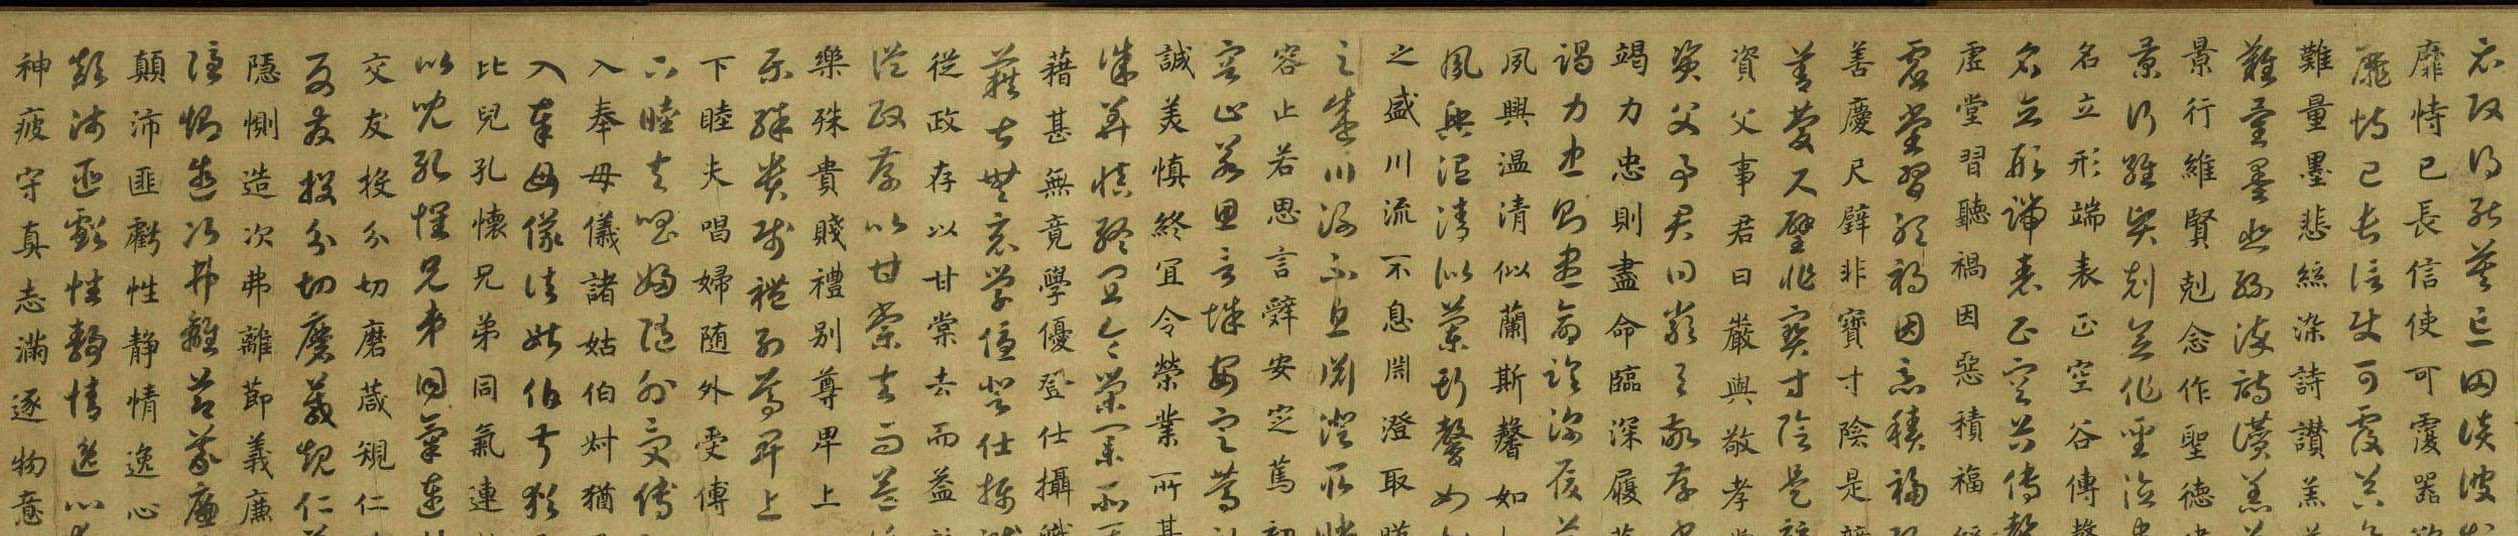 必改得能莫忘罔談彼
靡恃己長信使可覆器
靡恃己長信使可覆器
難量墨悲絲染詩讃羔
難量墨悲絲染詩讃羔
景行維賢剋念作聖德
景行維賢剋念作聖德
名立形端表正空谷傳
名立形端表正空谷傳
虛堂習聽禍因惡積福
虛堂習聽禍因惡積福
善慶尺璧非寶寸陰是
善慶尺璧非寶寸陰是
資父事君曰嚴與敬孝
資父事君曰嚴與敬孝
竭力忠則盡命臨深履
竭力忠則盡命臨深履
夙興温清似蘭斯馨如
夙興温清似蘭斯馨如
之盛川流不息淵澄取
之盛川流不息淵澄取
容止若思言辭安定篤
容止若思言辭安定篤
誠美慎終宜令榮業所
誠美慎終宜令榮業所
藉甚無竟學優登仕攝
藉甚無竟學優登仕攝
從政存以甘棠去而益
從政存以甘棠去而益
樂殊貴賤禮別尊卑上
樂殊貴賤禮別尊卑上
下睦夫唱婦随外受傅
下睦夫唱婦随外受傅
入奉母儀諸姑伯叔猶
入奉母儀諸姑伯叔猶
比兒孔懷兄弟同氣連
比兒孔懷兄弟同氣連
交友投分切磨葴規仁
交友投分切磨葴規仁
隱惻造次弗離節義廉
隱惻造次弗離節義廉
顛沛匪虧性静情逸心
顛沛匪虧性静情逸心
神疲守真志滿逐物意